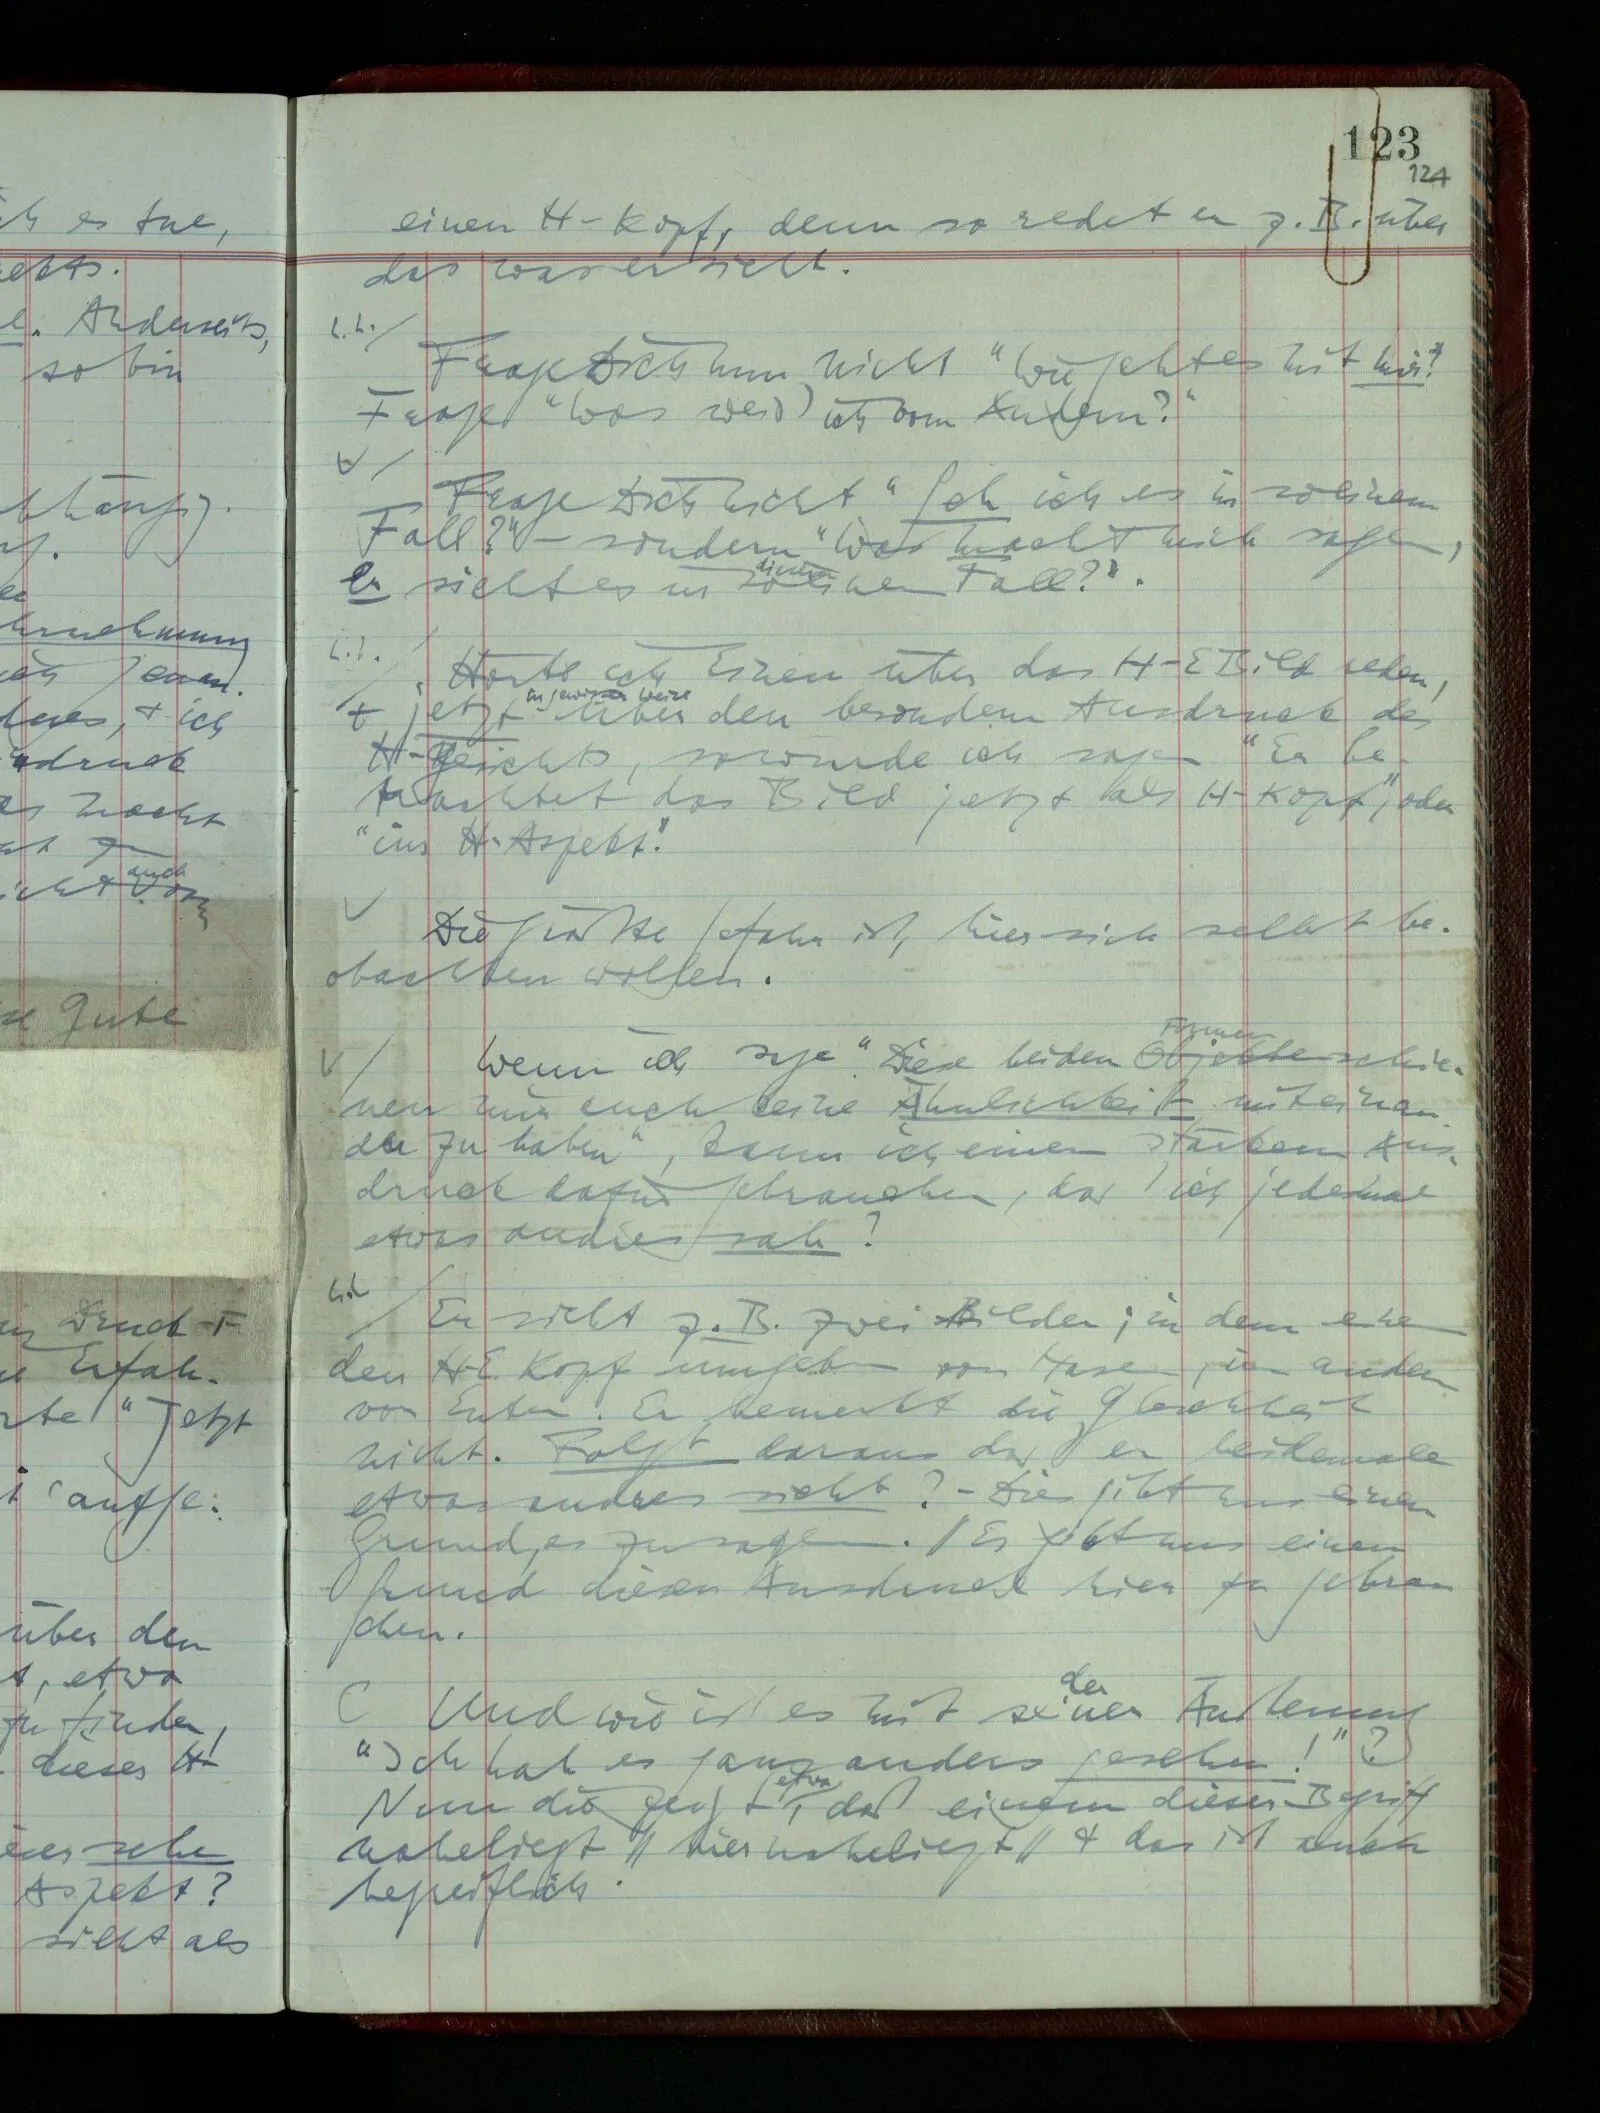 123
124
einen H-Kopf, denn so redet er z.B. über
das was er sieht.
Frage Dich nun nicht "Wie geht es mit mir?"
Frage "Was weiß ich vom Andern?"
Frage Dich nicht "Seh ich es in so einem
Fall?" – sondern "Was macht mich sagen,
diesem
Er sieht es in so einem Fall?".
Hörte ich Einen über das H-E Bild reden,
in gewisser Weise
+ jetzt über den besondern Ausdruck des
H-Gesichts, so würde ich sagen "Er be-
trachtet das Bild jetzt als H-Kopf", oder
"im H-Aspekt".
Die größte Gefahr ist, hier sich selbst be-
obachten wollen.
Formen
Wenn ich sage "Diese beiden Objekte schie-
nen mir auch keine Ähnlichkeit miteinan-
der zu haben", kann ich einen stärkern Aus-
druck dafür gebrauchen, daß ich jedesmal
etwas andres sah?
Er sieht z.B. zwei Bilder; in dem einen
den H-E Kopf umgeben von Hasen, im andern
von Enten. Er bemerkt die Gleichheit
nicht. Folgt daraus daß er beidemale
etwas andres sieht? – Dies gibt uns einen
Grund, es zu sagen. // Es gibt uns einen
Grund diesen Ausdruck hier zu gebrau
chen.
der
C Und wie ist es mit seiner Äußerung
"Ich hab es ganz anders gesehen!" ?
etwa
Nun die zeigt, daß einem dieser Begriff
naheliegt // hier naheliegt // + das ist auch
begreiflich.
ich es tue,
. Anderseits,
so bin
hrnehmung
+ ich
macht
auch
Gute
Druck-F
Erfah-
"Jetzt
über den
, etwa
zu finden,
dieses H-
sehe
Aspekt?
sieht als